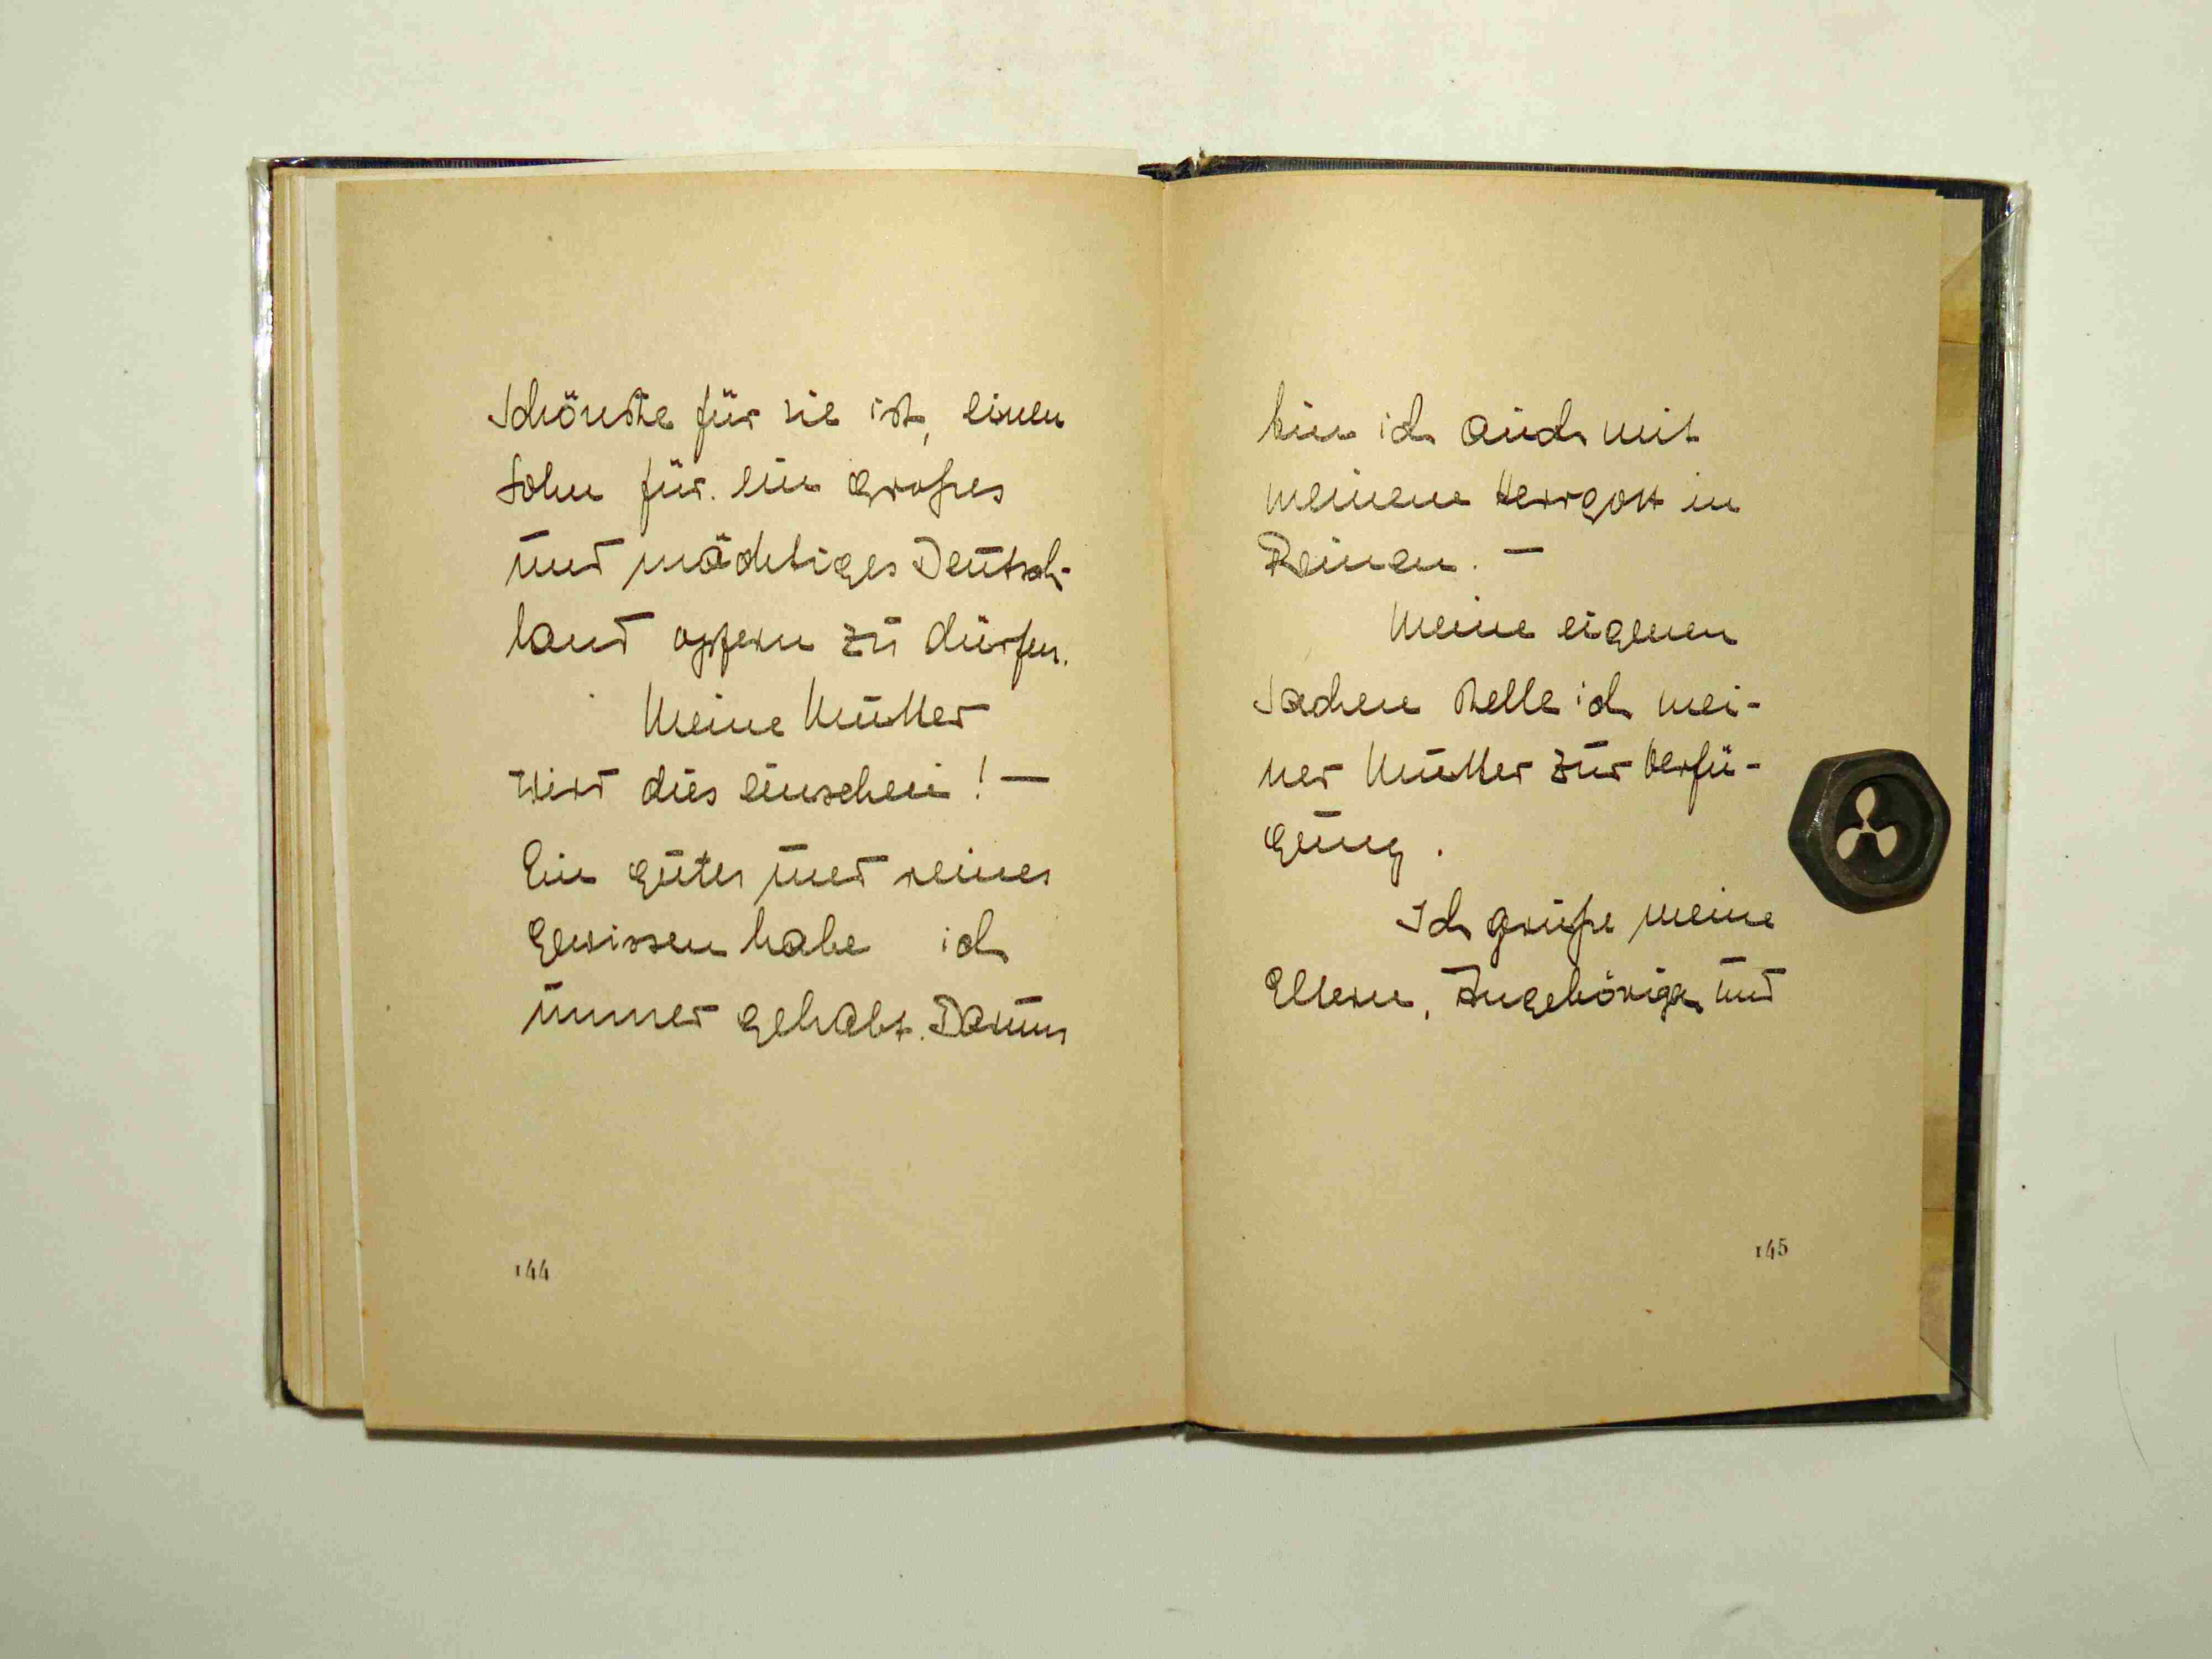 Schönste für sie ist, einen
Sohn für ein großes
und mächtiges Deutsch-
land opfern zu dürfen.
Meine Mutter
wird dies einsehen! —
Ein gutes und reines
Gewissen habe ich
immer gehabt. Darum
144
bin ich auch mit
meinem Herrgott im
Reinen. —
Meine eigenen
Sachen stelle ich mei-
ner Mutter zur Verfü-
gung.
Ich grüße meine
Eltern, Angehörigen und
145